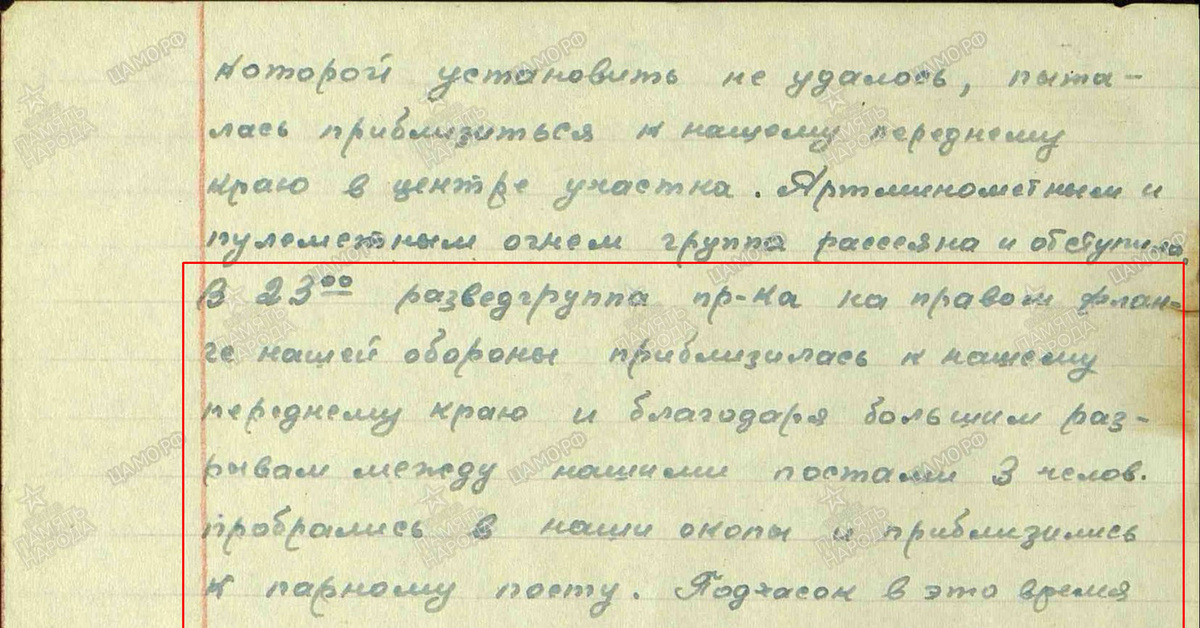 которой установить не удалось, пыта-
лась приблизиться к нашему переднему
краю в центре участка. Артминометным и
пулеметным огнем группа рассеяна и отступила.
В 23⁰⁰ разведгруппа пр-ка на правом флан-
ге нашей обороны приблизилась к нашему
переднему краю и благодаря большим раз-
рывам между нашими постами 3 челов.
пробрались в наши окопы и приблизились
к парному посту. Подчасок в это время
ЦАМО.РФ
ПАМЯТЬ НАРОДА